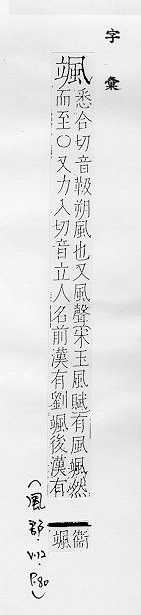 字彙
颯
悉合切音靸朔風也又風聲宋玉風賦有風颯然
而至○又力入切音立人名前漢有劉颯後漢有
衞
颯
(風部.V.12.P.80)